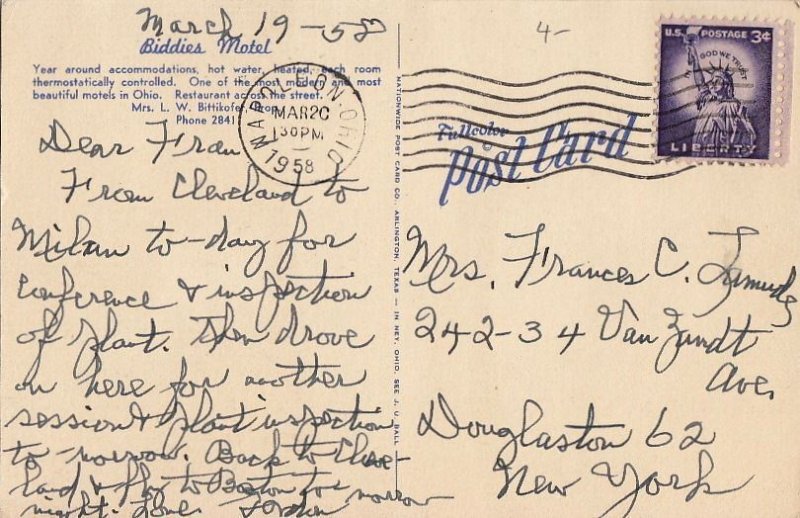 March 19-58
4-
Biddies Motel
Year around accommodations, hot water, heated, each room
thermostatically controlled. One of the most modern and most
beautiful motels in Ohio. Restaurant across the street.
Mrs. L. W. Bittikofer, Prop.
Phone 2841
MAR 20
130 PM
1958
OHIO
Dear Fran
From Cleveland to
Milan to-day for
conference & inspection
of plant. Then drove
on here for another
session & plant inspection
to-morrow. Back to Cleve-
land & fly to Boston to-morrow
night. Love
NATIONWIDE POST CARD CO., ARLINGTON, TEXAS — IN NEV, OHIO, SEE J. U. BALL
Fullcolor
Post Card
U.S. POSTAGE 3¢
IN GOD WE TRUST
LIBERTY
Mrs. Frances C.
242-34 Van Zandt
Ave,
Douglaston 62
New York